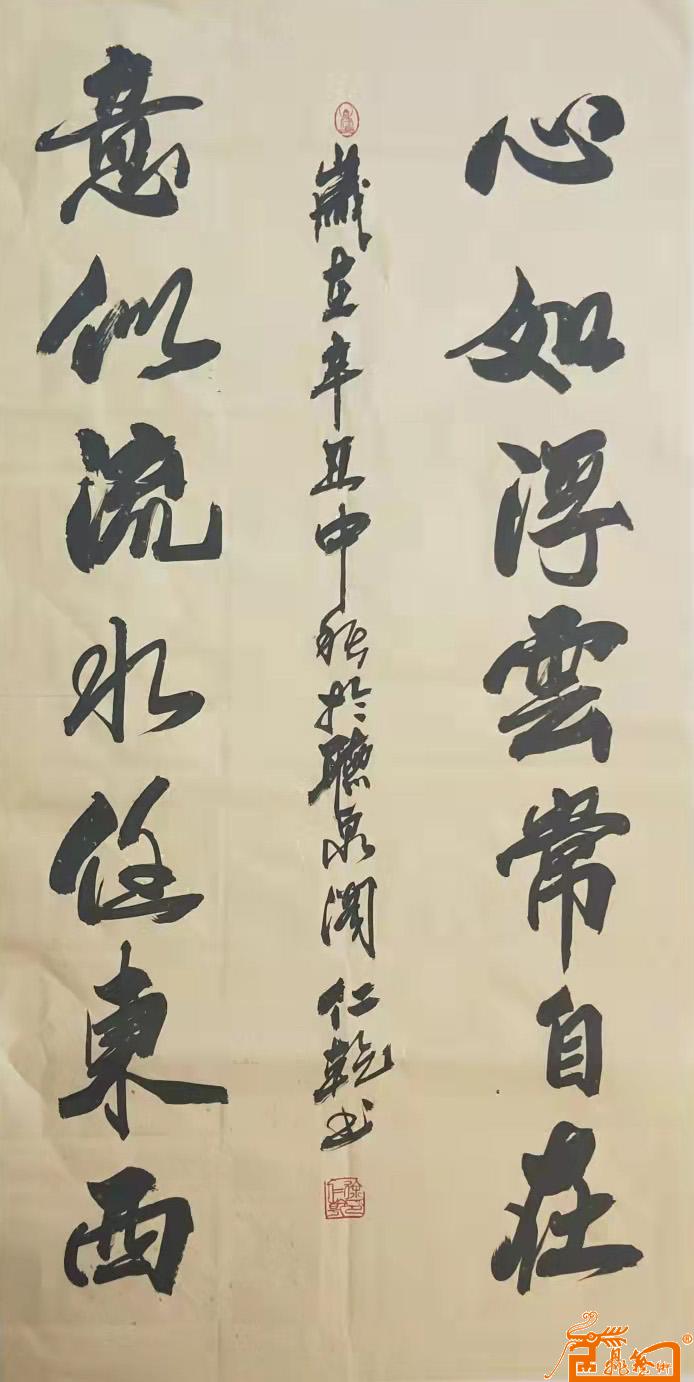 心如浮雲常自在
歲在辛丑中秋於聽泉澗仁乾書
意似流水任東西